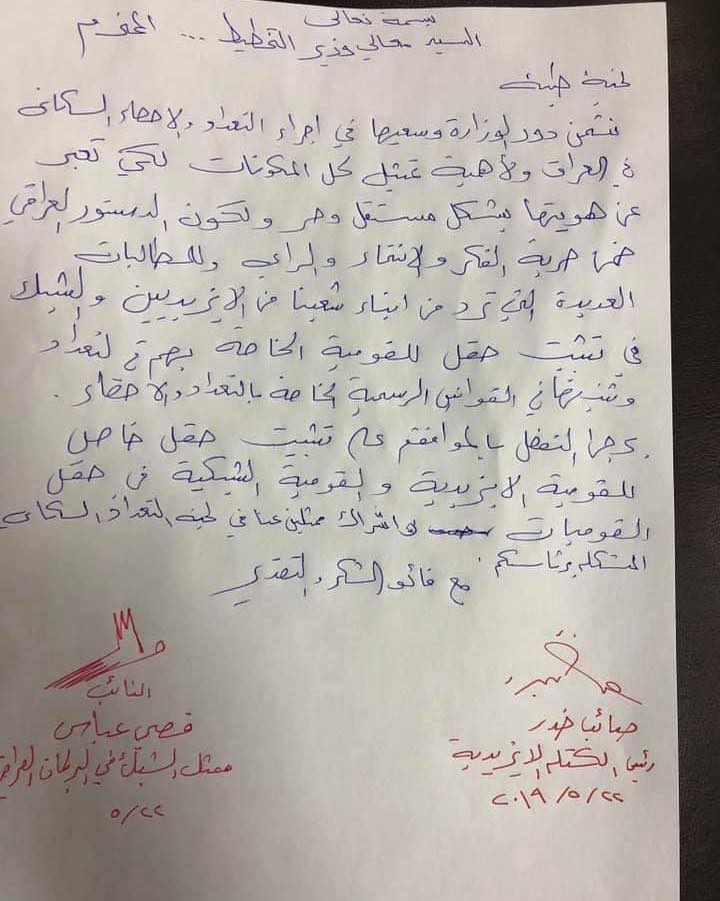 بسمه تعالى
السيد معالي وزير التخطيط ... المحترم
تحية طيبة
نثمن دور الوزارة وسعيها في اجراء التعداد والاحصاء السكاني
في العراق ولأهمية تمثيل كل المكونات لكي تعبر
عن هويتها بشكل مستقل وحر ولكون الدستور العراقي
ضمن حرية الفكر والانتماء والراي وللمطالبات
العديدة التي ترد من ابناء شعبنا من الايزيديين والشبك
في تثبيت حقل للقومية الخاصة بهم في التعداد
القوانين الرسمية الخاصة بالتعداد والاحصاء .
يرجى التفضل بالموافقة على تثبيت حقل خاص
للقومية الايزيدية والقومية الشبكية في حقل
القوميات اشراك ممثلين عنا في لجنة التعداد السكاني
المشكلة برئاستكم .
مع فائق الشكر والتقدير
صائب خدر
رئيس الكتلة الايزيدية
٢٠١٩/٥/٢٢
النائب
قصي عباس
ممثل الشبك في البرلمان العراقي
٥/٢٢